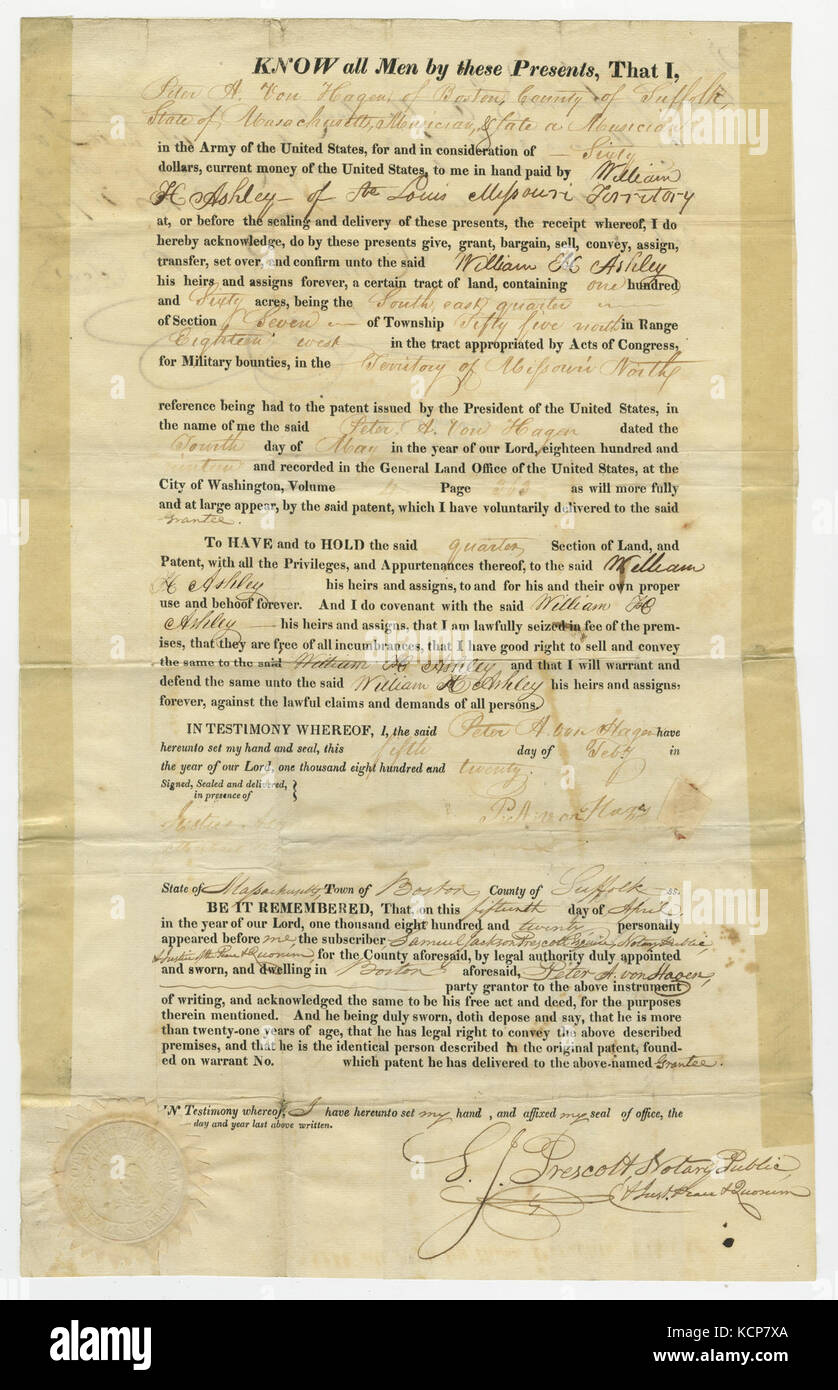 KNOW all Men by these Presents, That I,
Peter A. Von Hagen, of Boston, County of Suffolk,
State of Masachusetts, Musician, & late a Musician
in the Army of the United States, for and in consideration of Sixty
dollars, current money of the United States, to me in hand paid by William
H Ashley - of St. Louis Missouri Territory
at, or before the sealing and delivery of these presents, the receipt whereof, I do
hereby acknowledge, do by these presents give, grant, bargain, sell, convey, assign,
transfer, set over, and confirm unto the said William H Ashley
his heirs and assigns forever, a certain tract of land, containing one hundred
and Sixty acres, being the South east quarter
of Section Seven of Township Fifty five north in Range
Eighteen west in the tract appropriated by Acts of Congress,
for Military bounties, in the Territory of Missouri North
reference being had to the patent issued by the President of the United States, in
the name of me the said Peter. A. Von Hagen dated the
Fourth day of May in the year of our Lord, eighteen hundred and
and recorded in the General Land Office of the United States, at the
City of Washington, Volume Page as will more fully
and at large appear, by the said patent, which I have voluntarily delivered to the said
Grantee.
To HAVE and to HOLD the said quarter Section of Land, and
Patent, with all the Privileges, and Appurtenances thereof, to the said William
H Ashley his heirs and assigns, to and for his and their own proper
use and behoof forever. And I do covenant with the said William H
Ashley his heirs and assigns, that I am lawfully seized in fee of the prem-
ises, that they are free of all incumbrances, that I have good right to sell and convey
the same to the said William H Ashley, and that I will warrant and
defend the same unto the said William H Ashley his heirs and assigns,
forever, against the lawful claims and demands of all persons.
IN TESTIMONY WHEREOF, I, the said Peter A. von Hagen have
hereunto set my hand and seal, this fifth day of Feby in
the year of our Lord, one thousand eight hundred and twenty.
Signed, Sealed and delivered,
in presence of
P. A. von Hagen
Justus
State of Massachusetts, Town of Boston County of Suffolk ss.
BE IT REMEMBERED, That, on this fifteenth day of April
in the year of our Lord, one thousand eight hundred and twenty personally
appeared before me, the subscriber Samuel Jackson Prescott Notary Public,
& Justice Peace & Quorum, for the County aforesaid, by legal authority duly appointed
and sworn, and dwelling in Boston aforesaid, Peter A. von Hagen,
party grantor to the above instrument
of writing, and acknowledged the same to be his free act and deed, for the purposes
therein mentioned. And he being duly sworn, doth depose and say, that he is more
than twenty-one years of age, that he has legal right to convey the above described
premises, and that he is the identical person described in the original patent, found-
ed on warrant No. which patent he has delivered to the above-named Grantee.
IN Testimony whereof, I have hereunto set my hand, and affixed my seal of office, the
day and year last above written.
S. J. Prescott, Notary Public,
& Just. Peace & Quorum
alamy
Image ID: KCP7XA
www.alamy.com